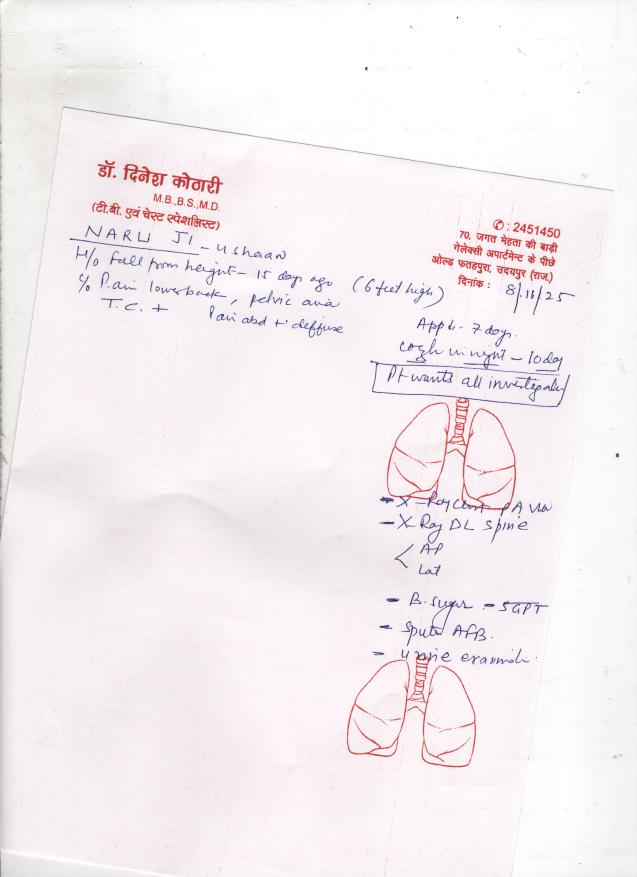 डॉ. दिनेश कोठारी
M.B.,B.S.,M.D.
(टी.बी. एवं चेस्ट स्पेशलिस्ट)
✆ : 2451450
70, जगत मेहता की बाड़ी
गेलेक्सी अपार्टमेन्ट के पीछे
ओल्ड फतहपुरा, उदयपुर (राज.)
दिनांक : 8/11/25
NARU JI - Ushaan
H/o Fall from height - 15 days ago (6 feet high)
c/o Pain lower back, pelvic area
T.C. + Pain abd + deffuse
App ↓ - 7 days.
cough in night - 10 day
Pt wants all
- X-Ray Chest PA View
- X-Ray DL Spine
< AP
Lat
- B. Sugar - SGPT
- Sputu AFB.
- urine